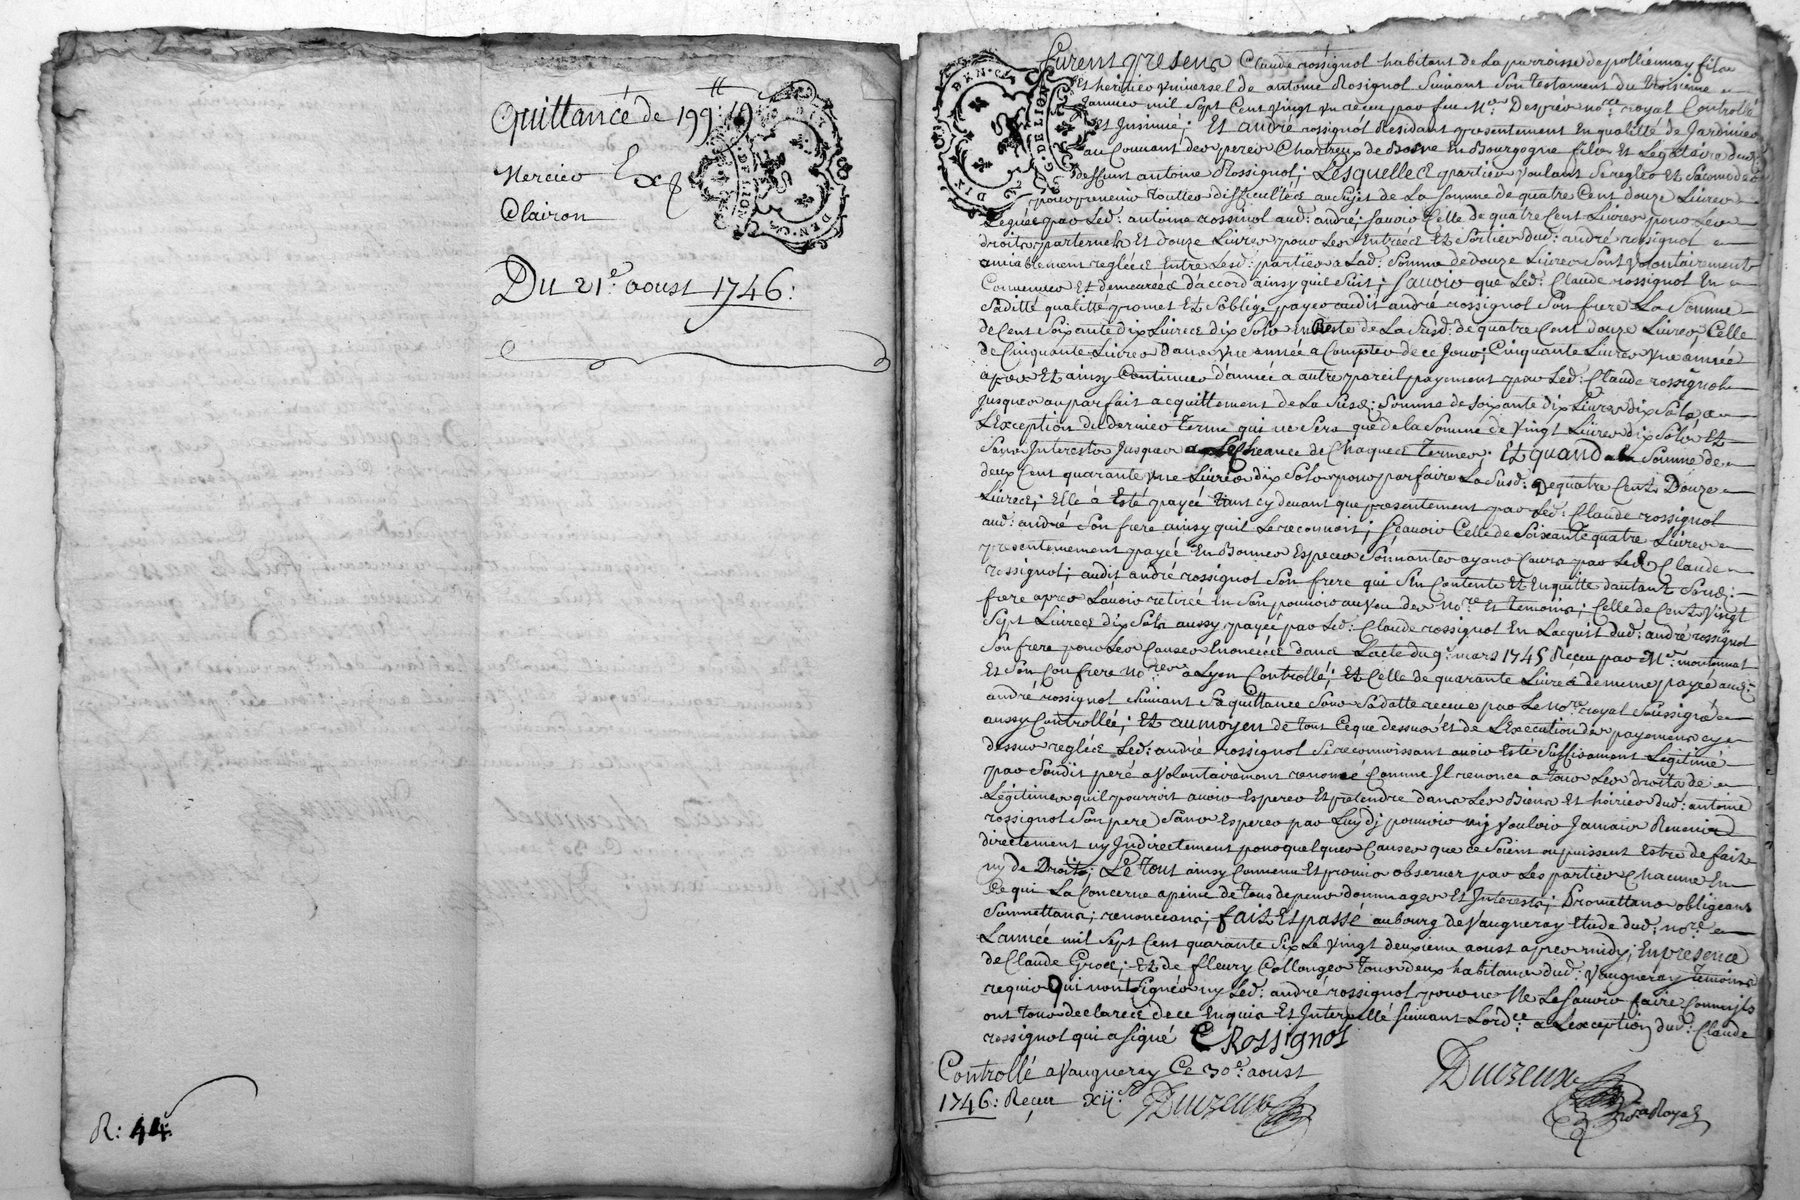 Quittance de 199 ₶ 19
Mercier Ex
Clairon
Du 21e. aoust 1746:
R: 44
Furent presens Claude rossignol habitant de La parroisse de pollionnay fils
Et heritier universel de antoine Rossignol Suivant Son testament du troisieme
Janvier mil Sept Cent vingt un receu par feu Me. nore. royal Controllé
Et Insinué; Et andré rossignol Residant presentement En qualitté de Jardinier
au Couvant des peres Chartreux de Bosne En Bourgogne fils Et Legataire dud:
deffunt antoine Rossignol; Lesquelles parties voulant Se regler Et Sacomoder
pour prevenir touttes difficultés au Sujet de La Somme de quatre Cent douze Livres
Leguée par Led: antoine rossinol aud: andré; Savoir Celle de quatre Cent Livres pour Ses
droits parternels Et douze Livres pour Les Entrées Et Sorties dud: andré rossignol
amiablement reglées Entre Lesd: parties a Lad: Somme de douze Livres Sont volontairement
Convenues Et demeurées d'accord ainsy quil Suit; Scavoir que Led: Claude rossignol En
Saditte qualitté promet Et Soblige payer audit andré rossignol Son frere La Somme
de Cent Soixante dix Livres dix Sols En Reste de La Susd: de quatre Cent douze Livres, Celle
de Cinquante Livres dans une année a Compter de ce Jour; Cinquante Livres une année
apres Et ainsy Continuer d'année a autre pareil payement par Led: Claude rossignol
Jusques au parfait acquittement de La Susd: Somme de soixante dix Livres dix Sols a
L'Exception du dernier terme qui ne Sera que de la Somme de vingt Livres dix Sols Et
Sans Interests Jusques a L'Echeance de Chaques termes; Et quand a la Somme de
deux Cent quarante une Livres dix Sols pour parfaire La Susd: De quatre Cent Douze
Livres; Elle a Esté payée tant cy devant que presentement par Led: Claude rossignol
aud: andré Son frere ainsy quil Le reconnoit; Scavoir Celle de Soixante quatre Livres
presentement payée En Bonnes Especes Sonnantes ayans Cours par Led Claude
rossignol; audit andré rossignol Son frere qui S'en Contente Et Enquitte dautant Sond:
frere apres L'avoir retirée En Son pouvoir au veu des nore. Et temoins; Celle de Cent vingt
Sept Livres dix Sols aussy payée par Led: Claude rossignol En L'acquit dud: andré rossignol
Son frere pour Les Causes Enoncées dans L'acte du 9e. mars 1745 Receu par Me. montermat
Et Son Confrere nores. a Lyon Controllé; Et Celle de quarante Livres de meme payée aud:
andré rossignol Suivant Sa quittance Sous Sa datte receue par Le nore. royal Soussigné
aussy Controllée; Et au moyen de tout Ceque dessus Et de L'Execution des payemens cy
dessus reglées Led: andré rossignol Se reconnoissant avoir Esté Suffisament Legitimé
par Sondit pere a volontairement renoncé Comme Il renonce a tous Les droits de
Legitimes quil pourroit avoir Esperer Et pretendre dans Les Biens Et hoiries dud: antoine
rossignol Son pere Sans Esperer par Luy dj pouvoir nij vouloir Jamais Revenir
directement ny Indirectement pour quelques Causes que ce Soint ou puissent Estre de fait
ny de Droit; Le tout ainsy Convenu Et promis observer par Les parties Chacune En
Ce qui La Concerne a peine de tous depens dommages Et Interests; Promettans obligeans
Soumettans; renonceans; fait Et passé au bourg de Vaugneray Etude dud: nore.
L'année mil Sept Cent quarante Six Le vingt deuxieme aoust apres midy; En presence
de Claude Gros; Et de fleury Collonges tous deux habitans dud: Vaugneray temoins
requis Qui nont Signés ny Led: andré rossignol pour ne Le Savoir faire Comme ils
ont tous declarées de ce Enquis Et Interpellé Suivant Lordce. a L'exception dud: Claude
rossignol qui a Signé C Rossignol
Controllé a Vaugneray Ce 30e. aoust
1746: Receu xij s